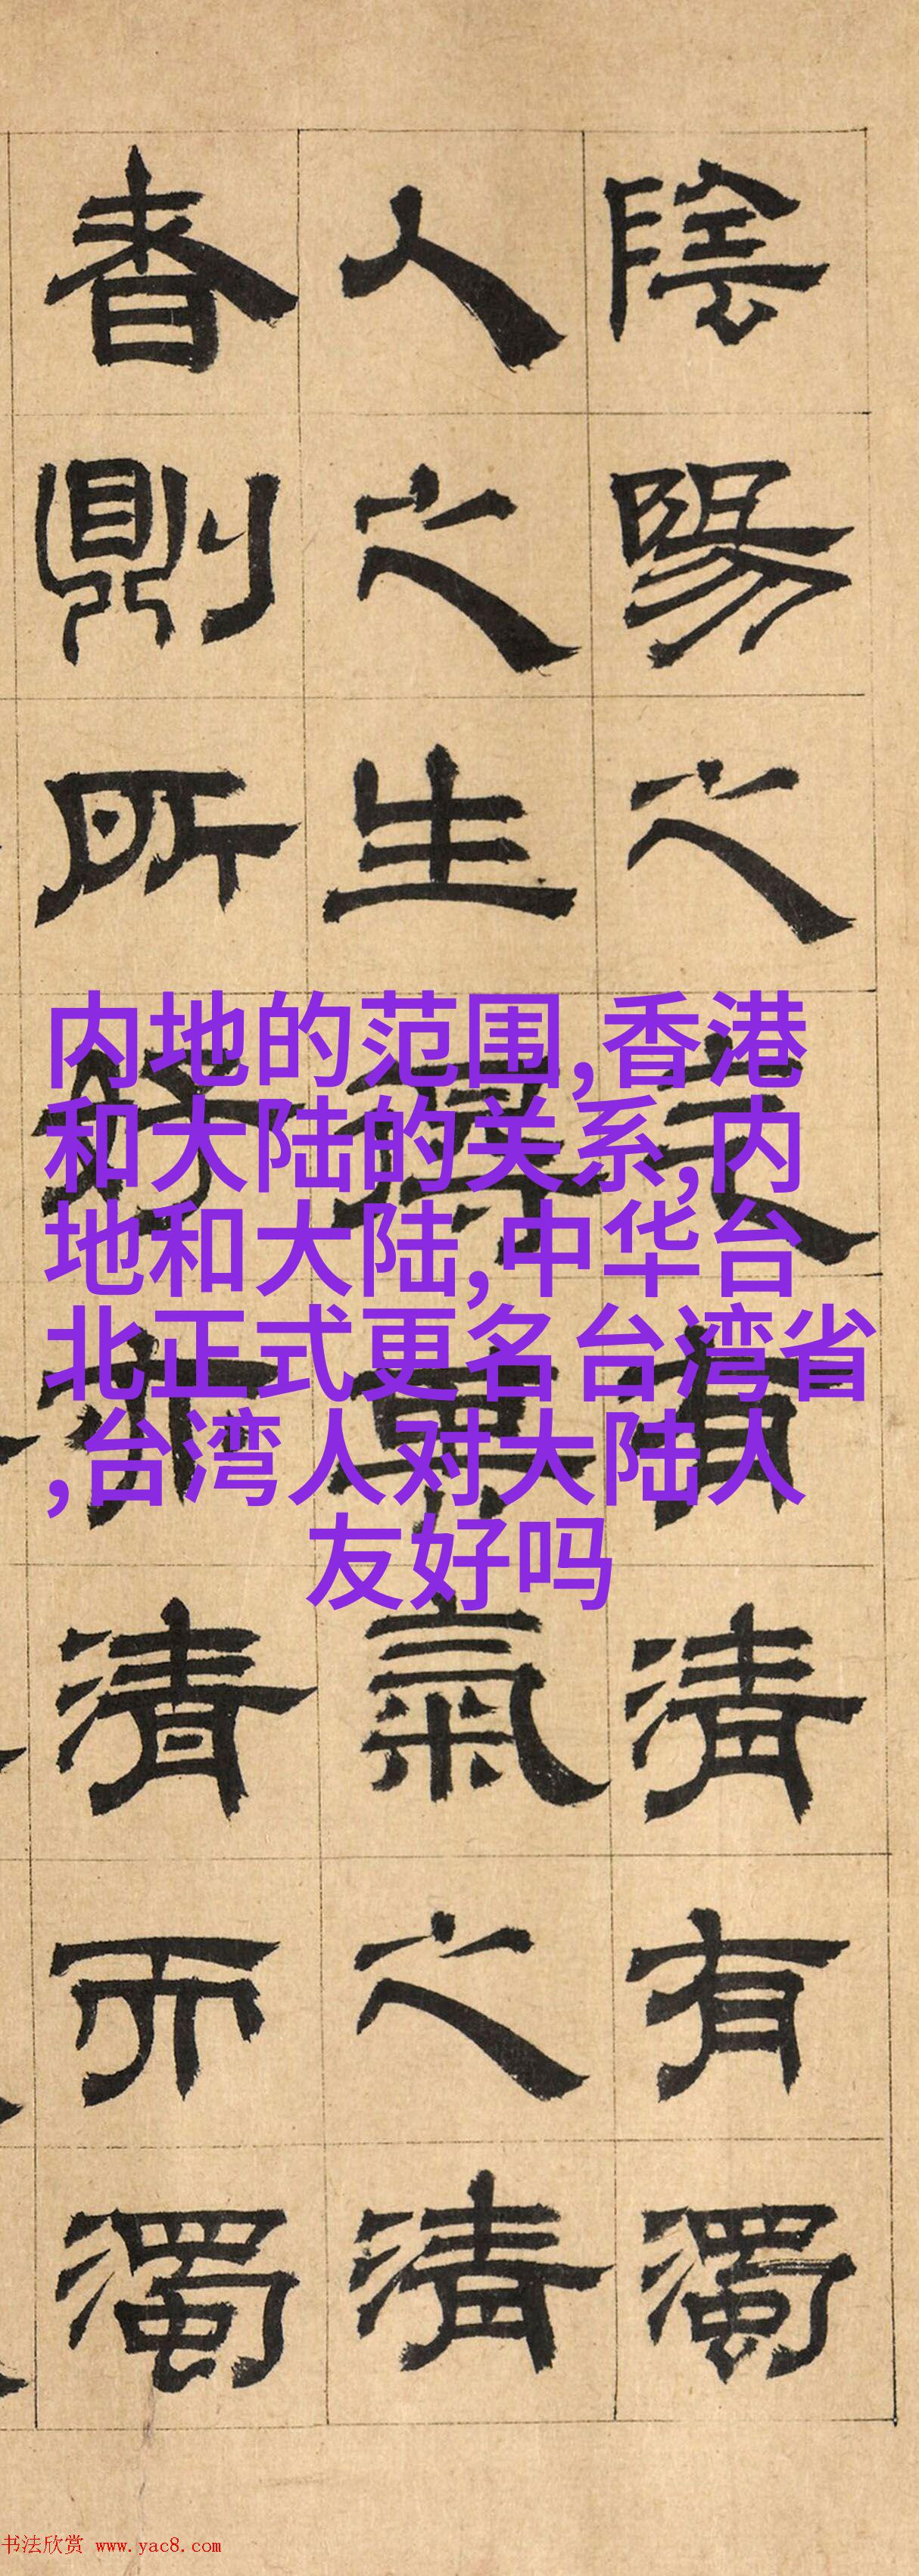 陰陽之有清有濁
人之生得其氣之清
者則所好亦清而濁
内地的范围,香港
和大陆的关系,内
地和大陆,中华台
北正式更名台湾省
,台湾人对大陆人
友好吗
书法欣赏 www.yac8.com